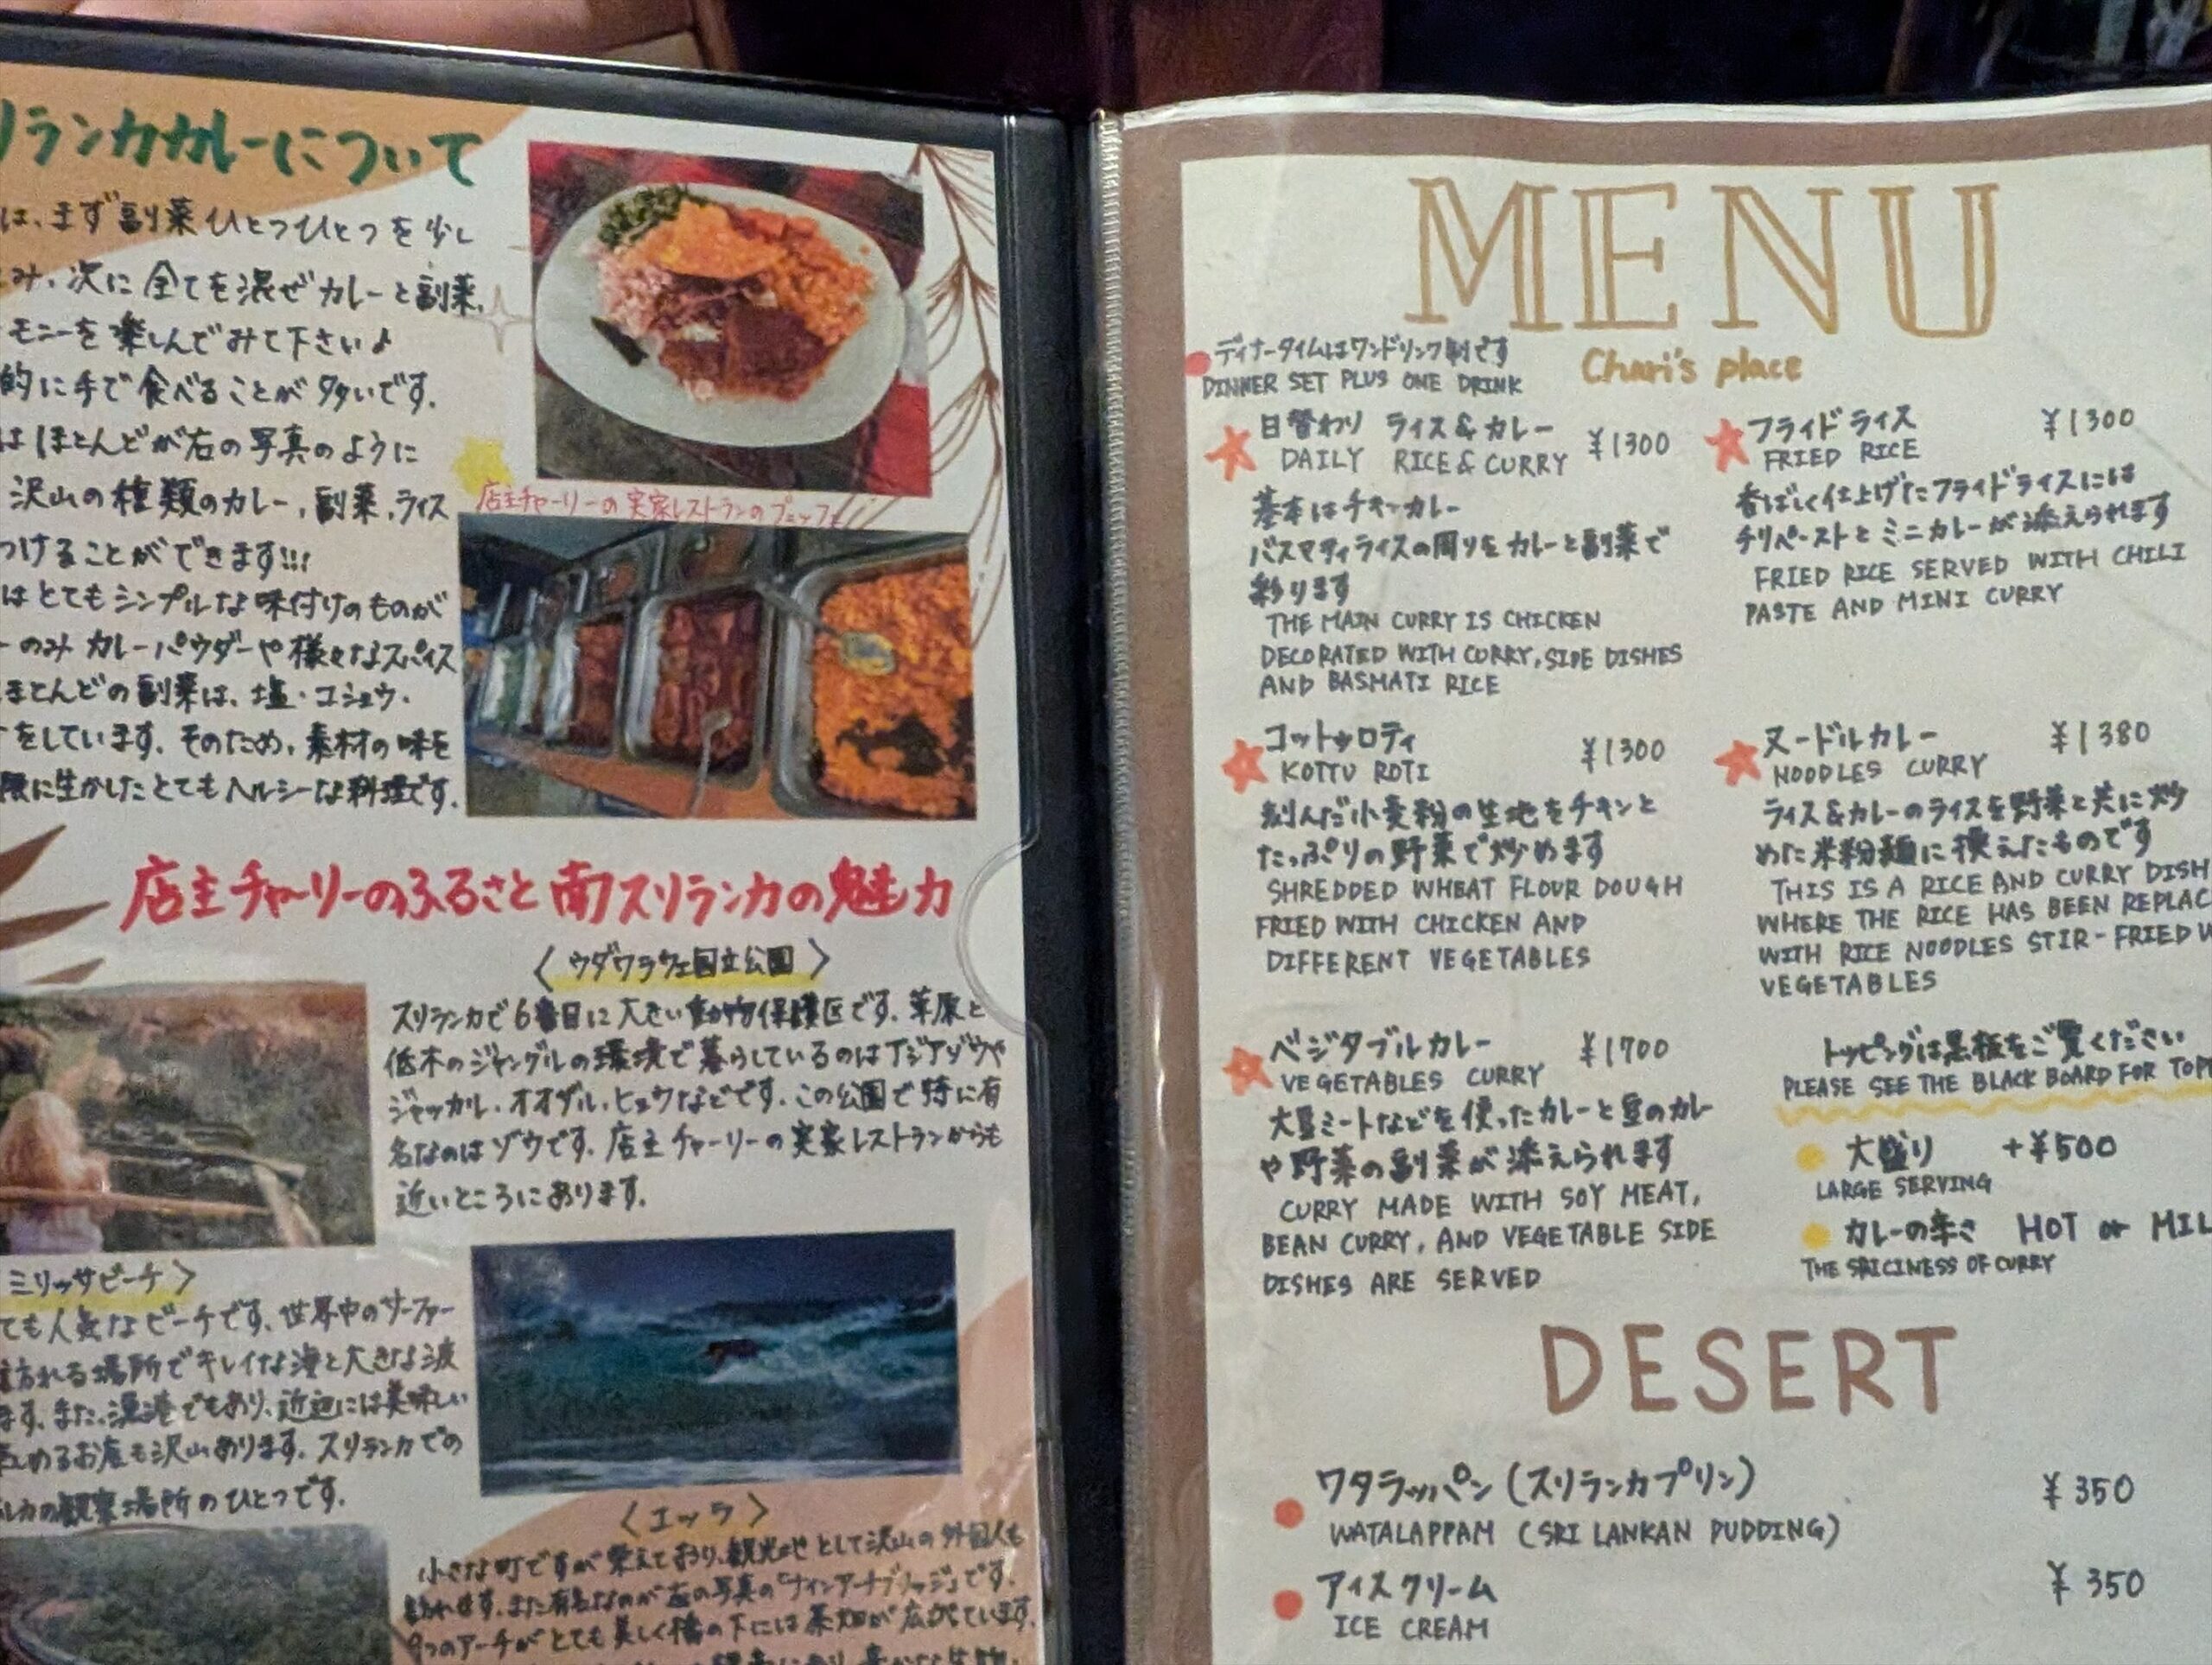 リランカカレーについて
は、まず副菜ひとつひとつを少し
み、次に全てを混ぜカレーと副菜、
モニーを楽しんでみて下さい♪
的に手で食べることが多いです。
はほとんどが右の写真のように
沢山の種類のカレー、副菜、ライス
つけることができます!!!
はとてもシンプルな味付けのものが
ーのみカレーパウダーや様々なスパイス
ほとんどの副菜は、塩・コショウ・
をしています。そのため、素材の味を
限に生かしたとてもヘルシーな料理です。
店主チャーリーの実家レストランのブュッフェ
店主チャーリーのふるさと南スリランカの魅力
〈ウダワラウェ国立公園〉
スリランカで6番目に大きい動物保護区です。草原と
低木のジャングルの環境で暮らしているのはアジアゾウや
ジャッカル・オオザル・ヒョウなどです。この公園で特に有
名なのはゾウです。店主チャーリーの実家レストランからも
近いところにあります。
ミリッサビーチ〉
ても人気なビーチです。世界中のサーファー
訪れる場所でキレイな海と大きな波
ます。また、漁港でもあり、近辺には美味しい
めるお店も沢山あります。スリランカでの
ルカの観察場所のひとつです。
〈エッラ〉
小さな町ですが栄えており、観光地として沢山の外国人も
訪れます。また有名なのが左の写真の「ナインアーチブリッジ」です。
9つのアーチがとても美しく橋の下には茶畑が広がっています。
MENU
Chari's place
ディナータイムはワンドリンク制です
DINNER SET PLUS ONE DRINK
日替わり ライス&カレー ¥1300
DAILY RICE & CURRY
基本はチキンカレー
バスマティライスの周りをカレーと副菜で
彩ります
THE MAIN CURRY IS CHICKEN
DECORATED WITH CURRY, SIDE DISHES
AND BASMATI RICE
フライドライス ¥1300
FRIED RICE
香ばしく仕上げたフライドライスには
チリペーストとミニカレーが添えられます
FRIED RICE SERVED WITH CHILI
PASTE AND MINI CURRY
コットゥロティ ¥1300
KOTTU ROTI
刻んだ小麦粉の生地をチキンと
たっぷりの野菜で炒めます
SHREDDED WHEAT FLOUR DOUGH
FRIED WITH CHICKEN AND
DIFFERENT VEGETABLES
ヌードルカレー ¥1380
NOODLES CURRY
ライス&カレーのライスを野菜と共に炒
めた米粉麺に換えたものです
THIS IS A RICE AND CURRY DISH
WHERE THE RICE HAS BEEN REPLAC
WITH RICE NOODLES STIR-FRIED W
VEGETABLES
ベジタブルカレー ¥1700
VEGETABLES CURRY
大豆ミートなどを使ったカレーと豆のカレー
や野菜の副菜が添えられます
CURRY MADE WITH SOY MEAT,
BEAN CURRY, AND VEGETABLE SIDE
DISHES ARE SERVED
トッピングは黒板をご覧ください
PLEASE SEE THE BLACK BOARD FOR TOPP
大盛り +¥500
LARGE SERVING
カレーの辛さ HOT or MIL
THE SRICINESS OF CURRY
DESERT
ワタラッパン(スリランカプリン) ¥350
WATALAPPAM (SRI LANKAN PUDDING)
アイスクリーム ¥350
ICE CREAM